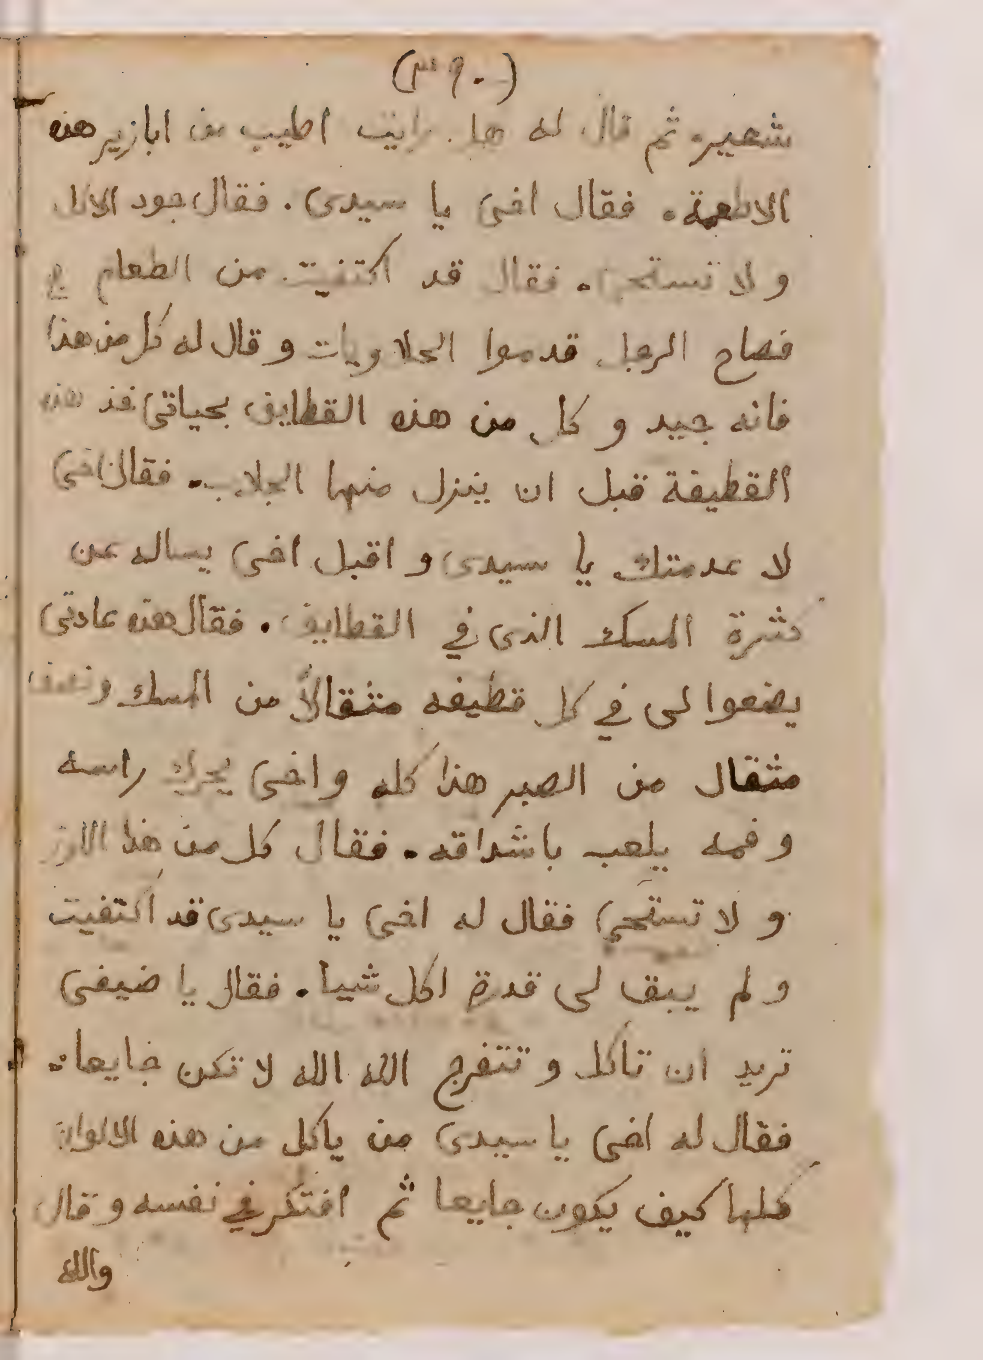 (٣٩٠)
شعير. ثم قال له هل رايت اطيب من ابازير هذه
الاطعمة. فقال اخى يا سيدى. فقال جود الاكل
و لا تستحى. فقال قد اكتفيت من الطعام
فصاح الرجل قدموا الحلاويات و قال له كل من هذا
فانه جيد و كل من هذه القطايف بحياتى خذ هذه
القطيفة قبل ان ينزل منها الجلاب. فقال اخى
لا عدمتك يا سيدى و اقبل اخى يساله عن
كثرة المسك الذى في القطايف. فقال هذه عادتى
يضعوا لى في كل قطيفه مثقالاً من المسك ونصف
مثقال من الصبر هذا كله واخى يحرك راسه
و فمه يلعب باشداقه. فقال كل من هذا الارز
و لا تستحى فقال له اخى يا سيدى قد اكتفيت
و لم يبق لى قدرة اكل شيا. فقال يا ضيفى
تريد ان تاكل و تتفرج الله الله لا تكن جايعا.
فقال له اخى يا سيدى من ياكل من هذه الالوان
كلها كيف يكون جايعا ثم افتكر في نفسه و قال
والله